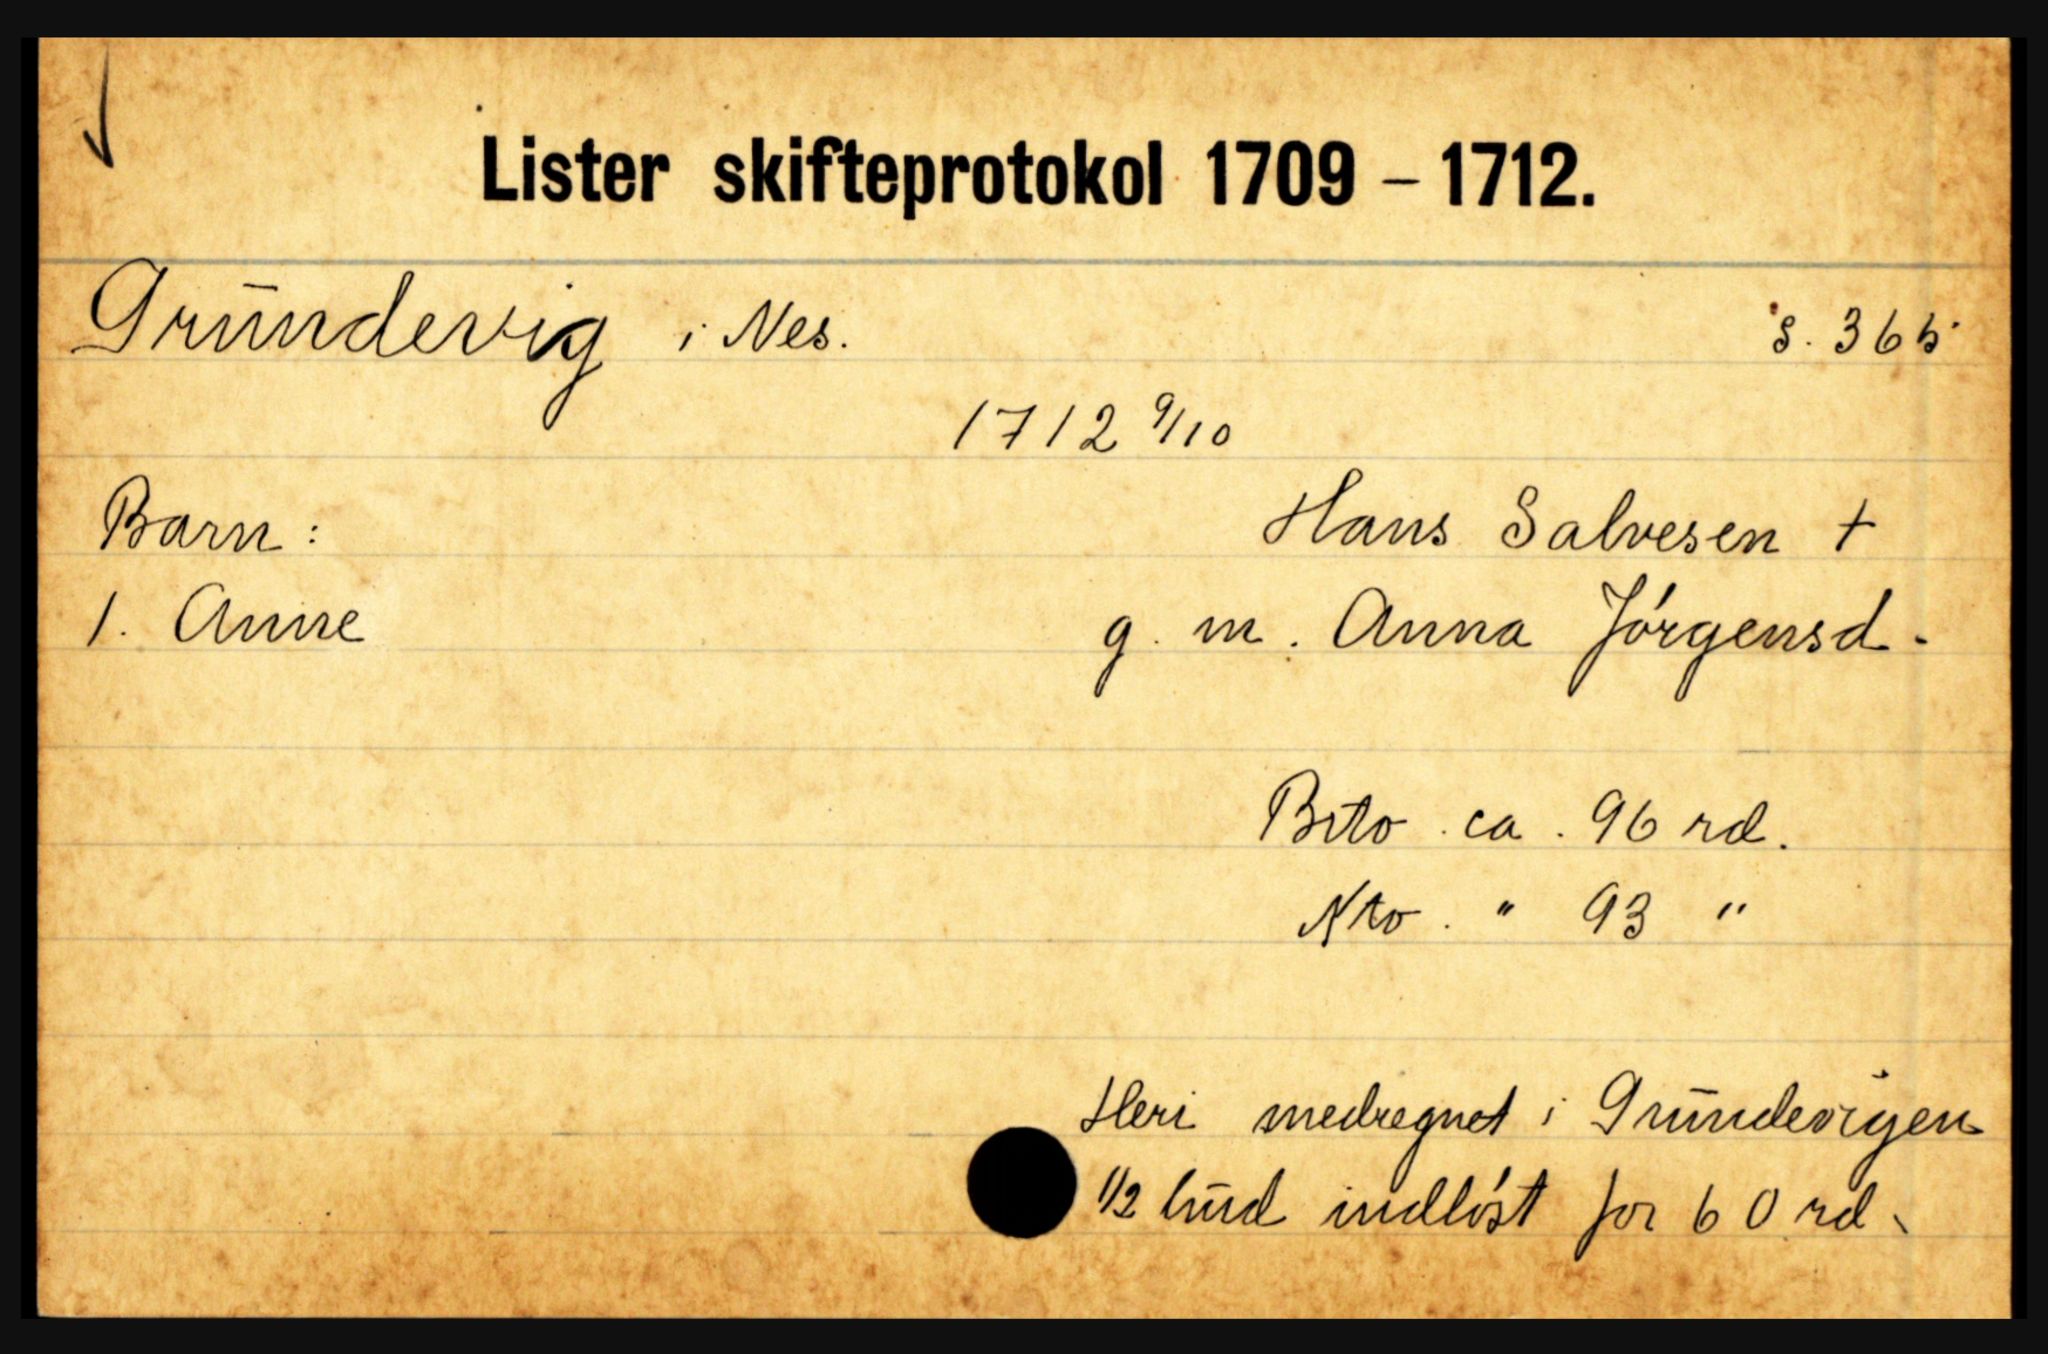 Lister skifteprotokol 1709 – 1712.
Grūndevig i Nes. s. 36 b
1712 9/10
Barn: Hans Salvesen +
1. Anne g. m. Anna Jórgensd.
Brto. ca. 96 rd.
Nto. " 93 "
Heri medregnet i Grūndevigen
1/2 hūd indlóst for 60 rd.